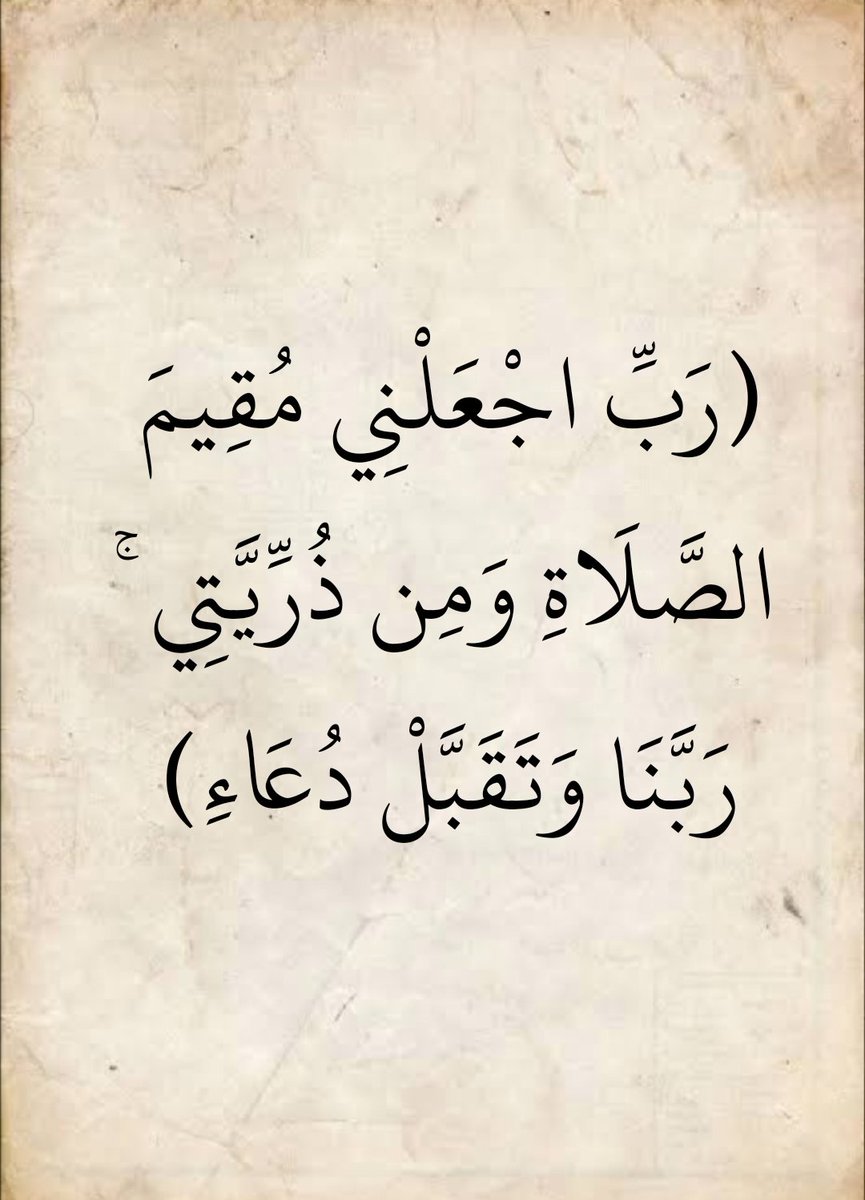 (رَبِّ اجْعَلْنِي مُقِيمَ
الصَّلَاةِ وَمِن ذُرِّيَّتِي ۚ
رَبَّنَا وَتَقَبَّلْ دُعَاءِ)